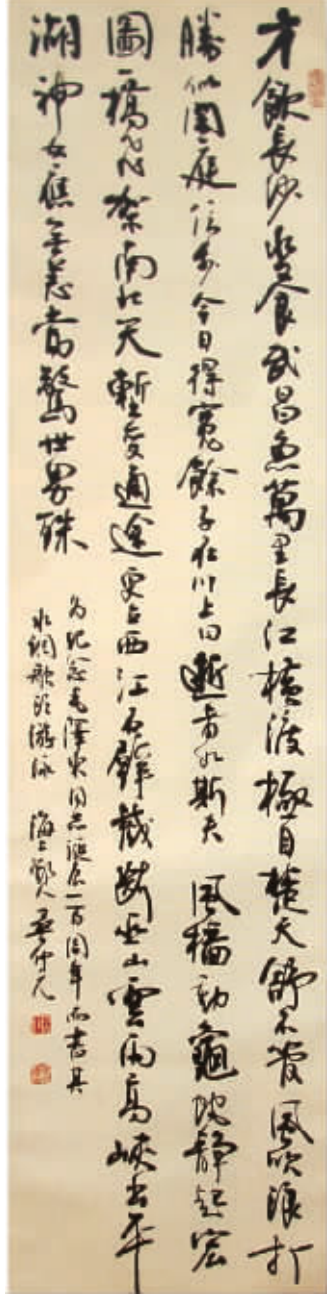 才飲長沙水又食武昌魚萬里長江橫渡極目楚天舒不管風吹浪打
勝似閑庭信步今日得寬餘子在川上曰逝者如斯夫 風檣動龜蛇靜起宏
圖一橋飛架南北天塹變通途更立西江石壁截斷巫山雲雨高峽出平
湖神女應無恙當驚世界殊
為紀念毛澤東同志誕辰一百周年而書其
水調歌頭游泳 海上 人 仲元